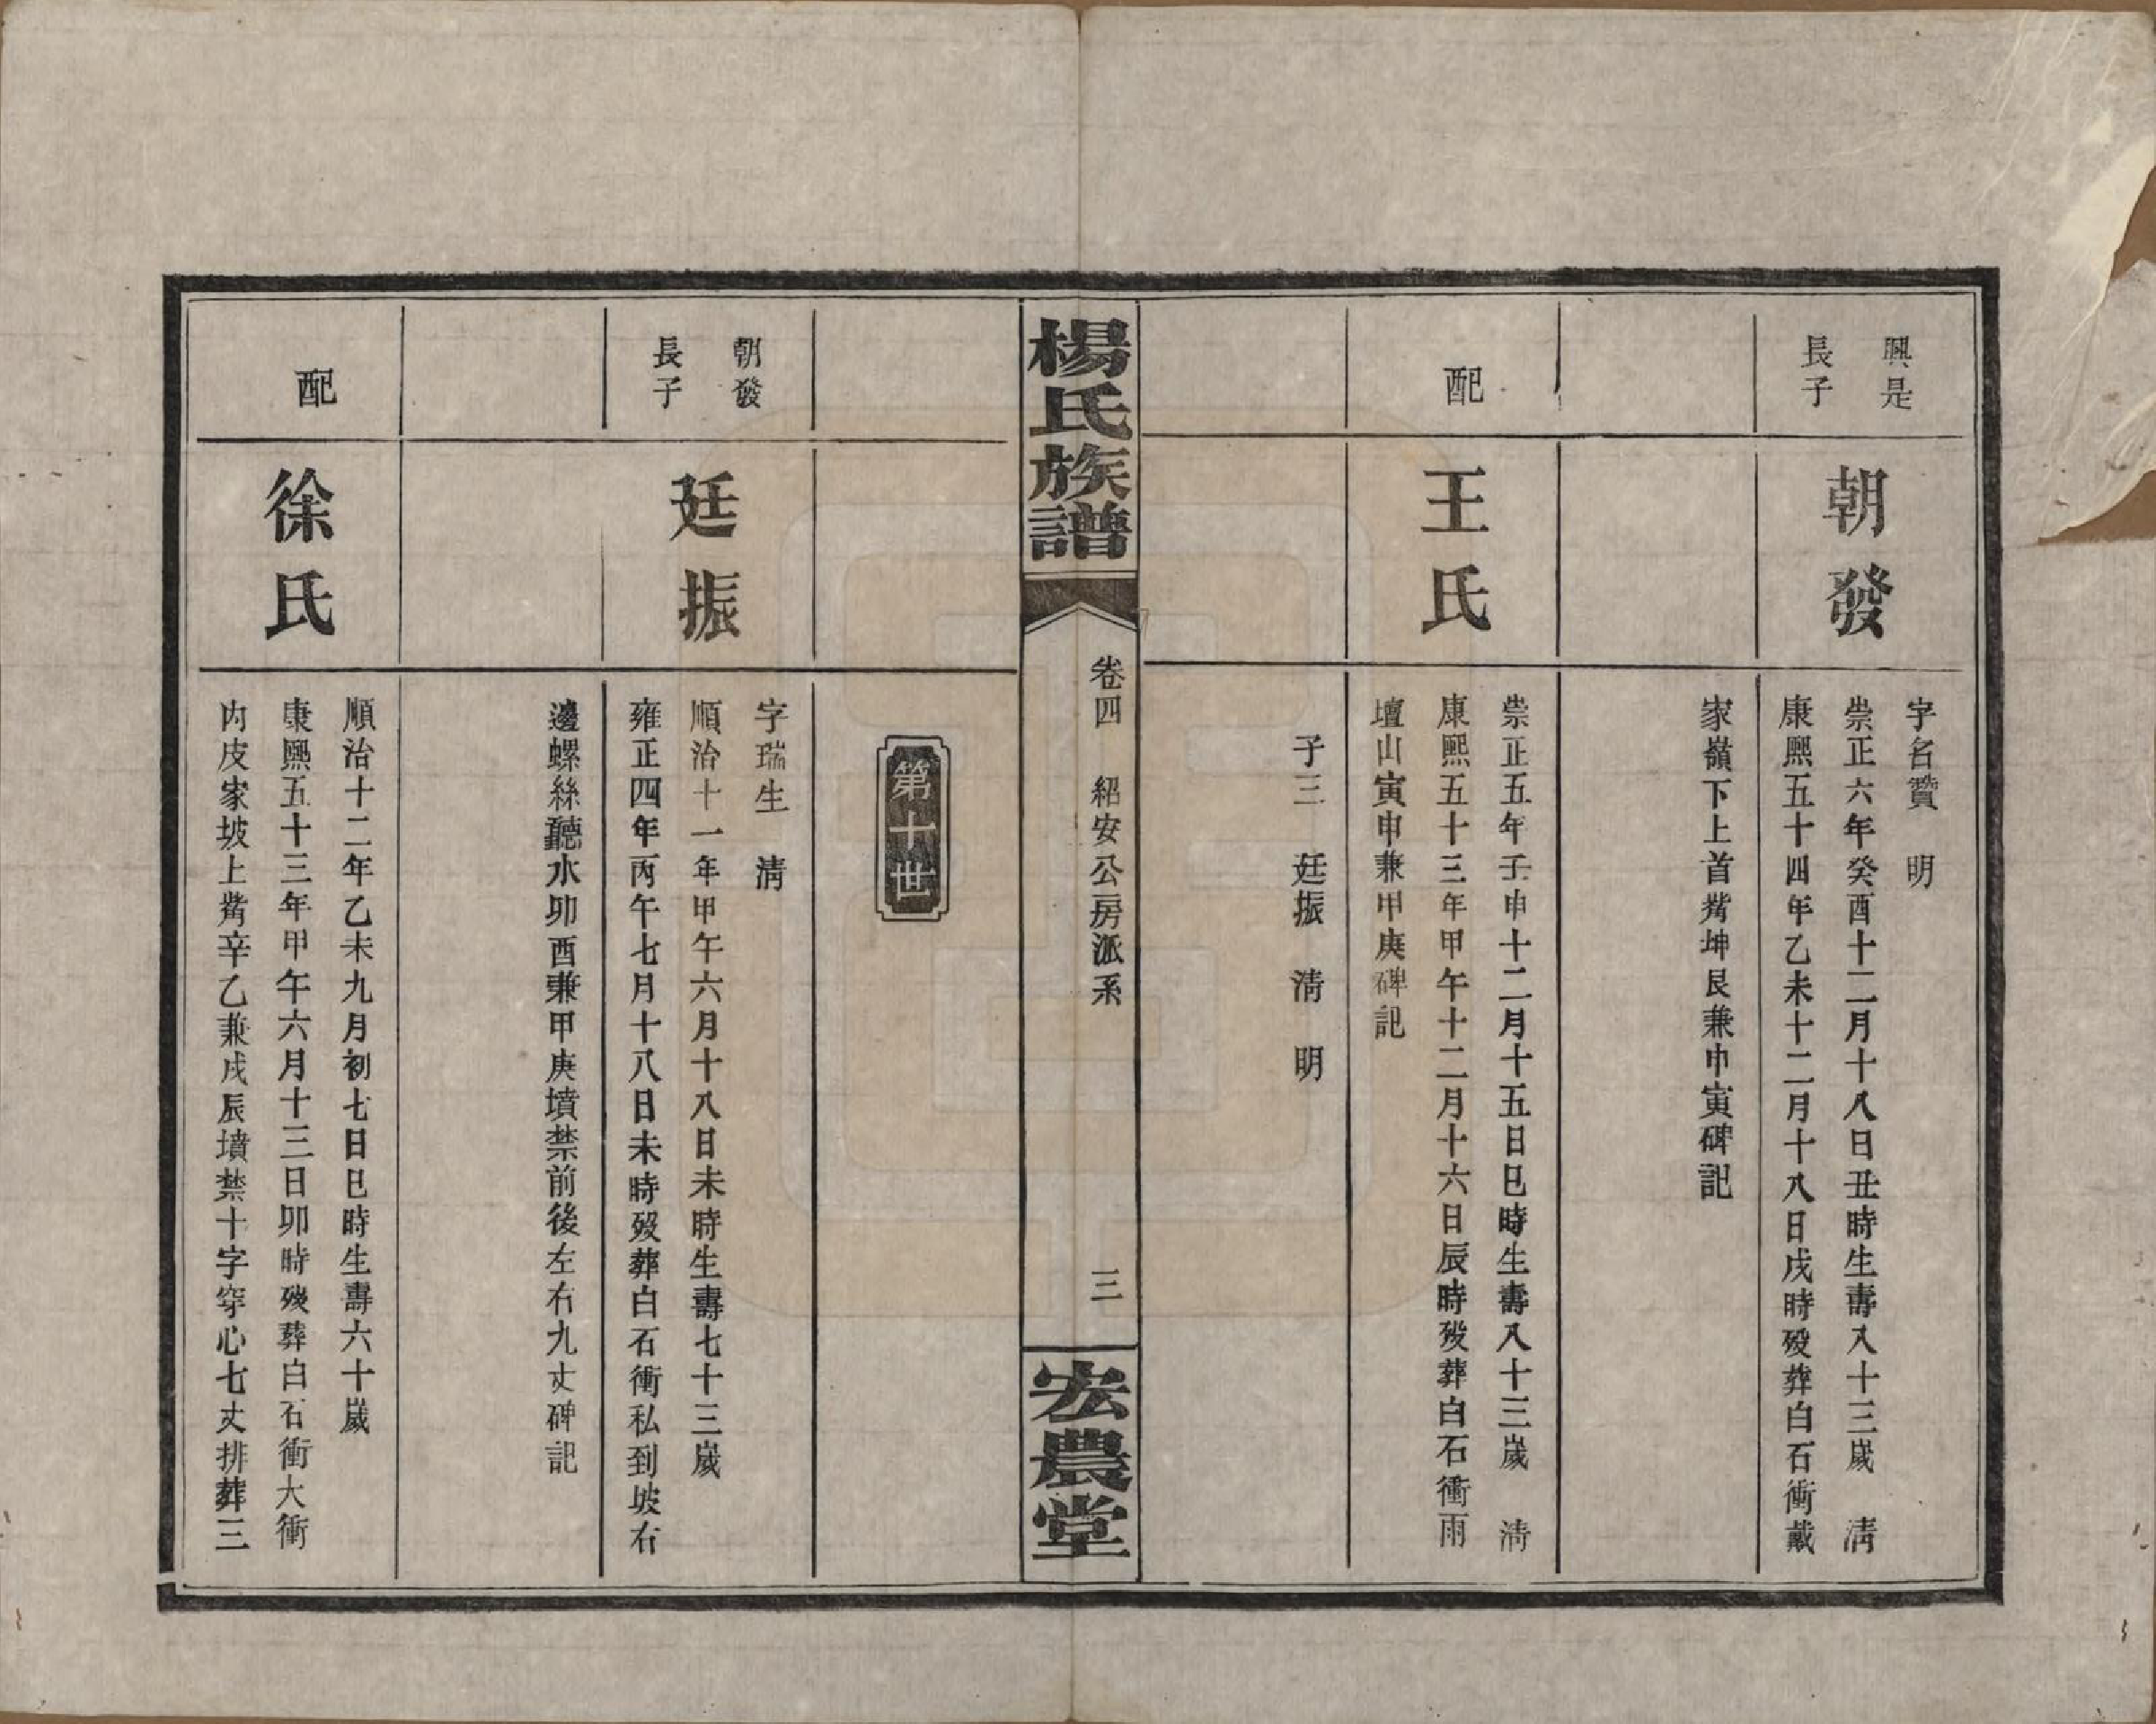 興是
長子
朝發
字名贊　明
崇正六年癸酉十二月十八日丑時生壽八十三歲　清
康熙五十四年乙未十二月十八日戌時歿葬白石衝戴
家嶺下上首觜坤艮兼申寅碑記
配
王氏
崇正五年壬申十二月十五日巳時生壽八十三歲　清
康熙五十三年甲午十二月十六日辰時歿葬白石衝雨
壇山寅申兼甲庚碑記
子三　廷振　清　明
楊氏族譜
卷四　紹安公房派系
三
宏農堂
第十世
朝發
長子
廷振
字瑞生　清
順治十一年甲午六月十八日未時生壽七十三歲
雍正四年丙午七月十八日未時歿葬白石衝私到坡右
邊螺絲聽水卯酉兼甲庚墳禁前後左右九丈碑記
配
徐氏
順治十二年乙未九月初七日巳時生壽六十歲
康熙五十三年甲午六月十三日卯時歿葬白石衝大衝
內皮家坡上觜辛乙兼戌辰墳禁十字穿心七丈排葬三